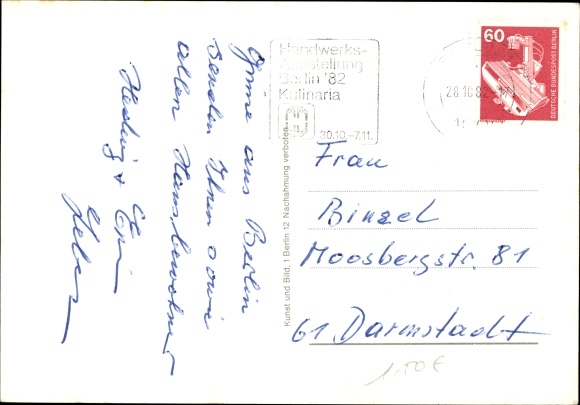 Grüsse aus Berlin
senden Ihnen sowie
allen Hausbewohner
Hedwig +
Handwerks-
Ausstellung
Berlin '82
Kulinaria
30.10.-7.11.
28.10.82
60
DEUTSCHE BUNDESPOST BERLIN
Kunst und Bild, 1 Berlin 12 Nachahmung verboten
Frau
Binzel
Moosbergstr. 81
61 Darmstadt
1,50 €